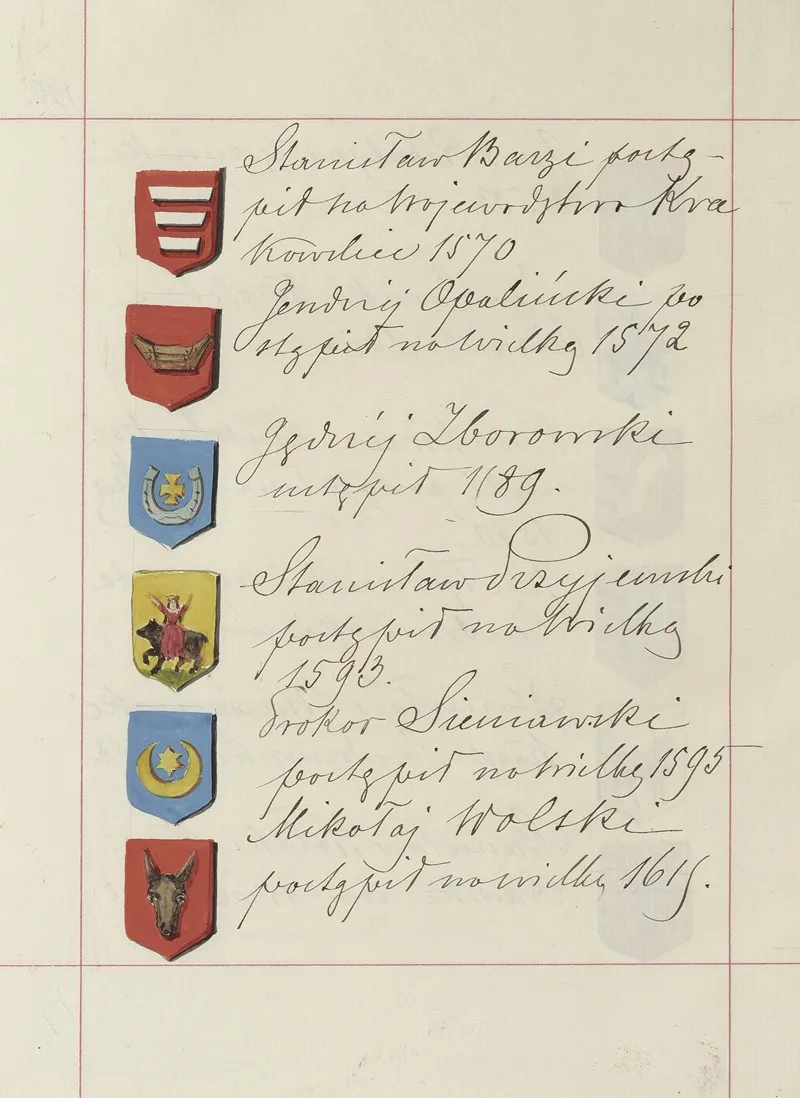 Stanisław Barzi postą-
pił na Wojewodztwo Kra
kowskie 1570
Jendrij Opaliński po
stąpił na wielką 1572
Jędrzij Zborowski
ustąpił 1589.
Stanisław Przyjemski
postąpił na wielką
1593.
Prokop Sieniawski
postąpił na wielką 1595
Mikołaj Wolski
postąpił na wielką 1615.